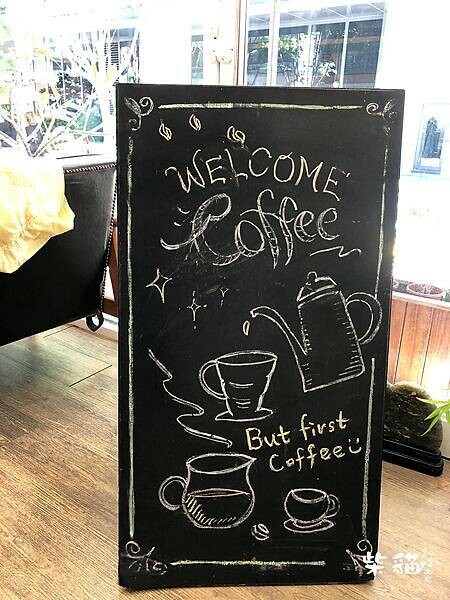 WELCOME
Coffee
But first
Coffee
柴貓